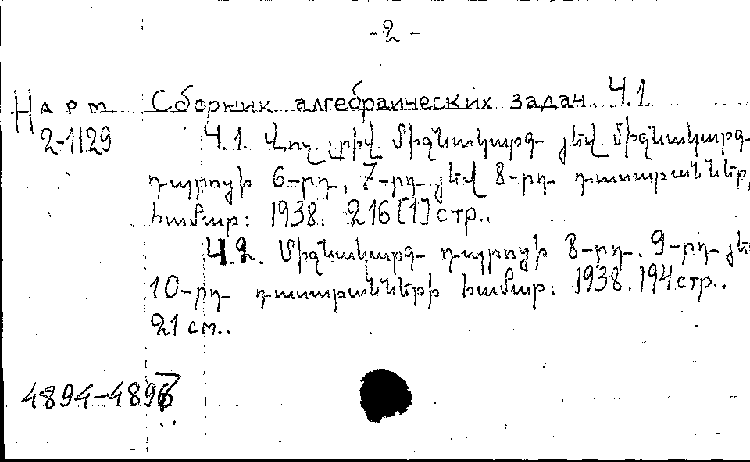 -2-
Нарm Сборник алгебраических задач. Ч.1
2-1129 Ч.1. Վոչ լրիվ միջնակարգ յեվ միջնակարգ
դպրոցի 6-րդ, 7-րդ յեվ 8-րդ դասարաններ,
համար: 1938. 216[1]стр..
Ч.2. Միջնակարգ դպրոցի 8-րդ. 9-րդ յե
10-րդ դասարանների համար: 1938. 194стр..
21см..
4894-489